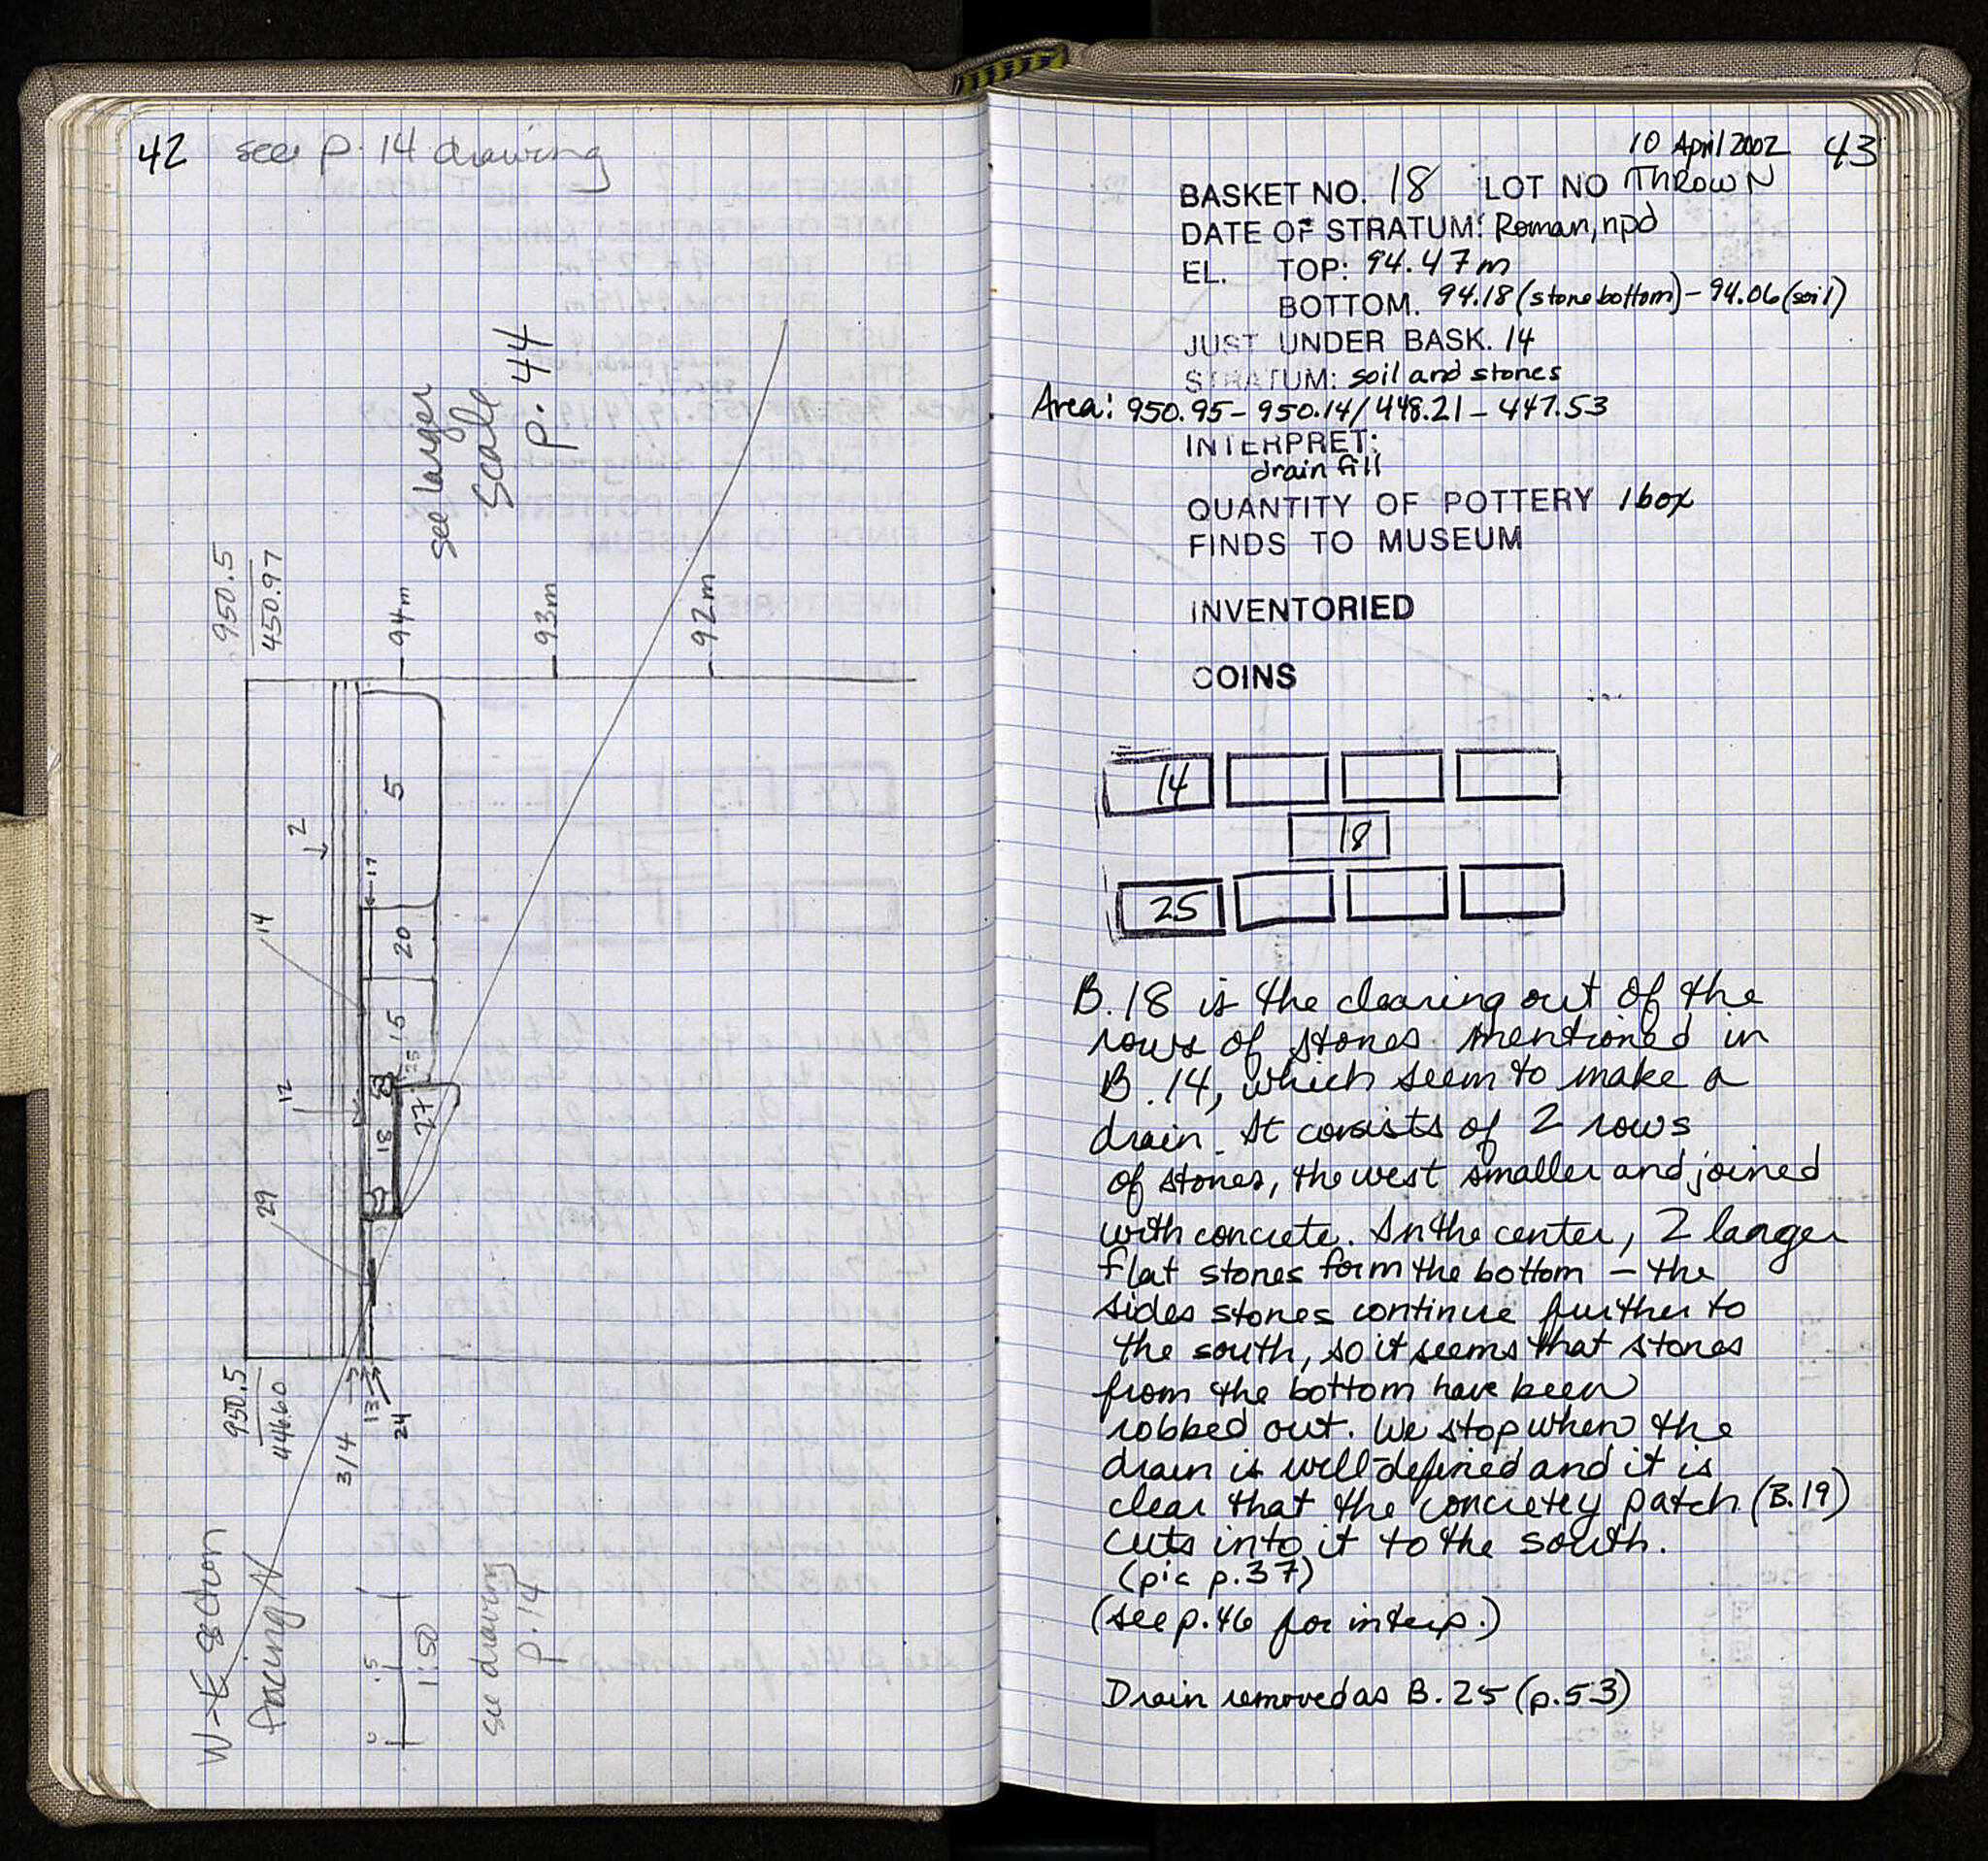 42 see p. 14 drawing
see larger
scale
p. 44
950.5
450.97
94m
93m
92m
5
2
17
14
20
15
25
12
18
27
29
950.5
446.60
3/4
13
24
W-E section
facing N
0 .5 1
1:50
see drawing
p. 14
10 April 2002 43
BASKET NO. 18 LOT NO THROWN
DATE OF STRATUM: Roman, npd
EL. TOP: 94.47m
BOTTOM. 94.18 (stone bottom) - 94.06 (soil)
JUST UNDER BASK. 14
STRATUM: soil and stones
Area: 950.95 - 950.14 / 448.21 - 447.53
INTERPRET:
drain fill
QUANTITY OF POTTERY 1 box
FINDS TO MUSEUM
INVENTORIED
COINS
14
18
25
B. 18 is the clearing out of the
rows of stones mentioned in
B. 14, which seem to make a
drain. It consists of 2 rows
of stones, the west smaller and joined
with concrete. In the center, 2 larger
flat stones form the bottom - the
sides stones continue further to
the south, so it seems that stones
from the bottom have been
robbed out. We stop when the
drain is well-defined and it is
clear that the concretey patch (B.19)
cuts into it to the south.
(pic p.37)
(see p.46 for interp.)
Drain removed as B.25 (p.53)